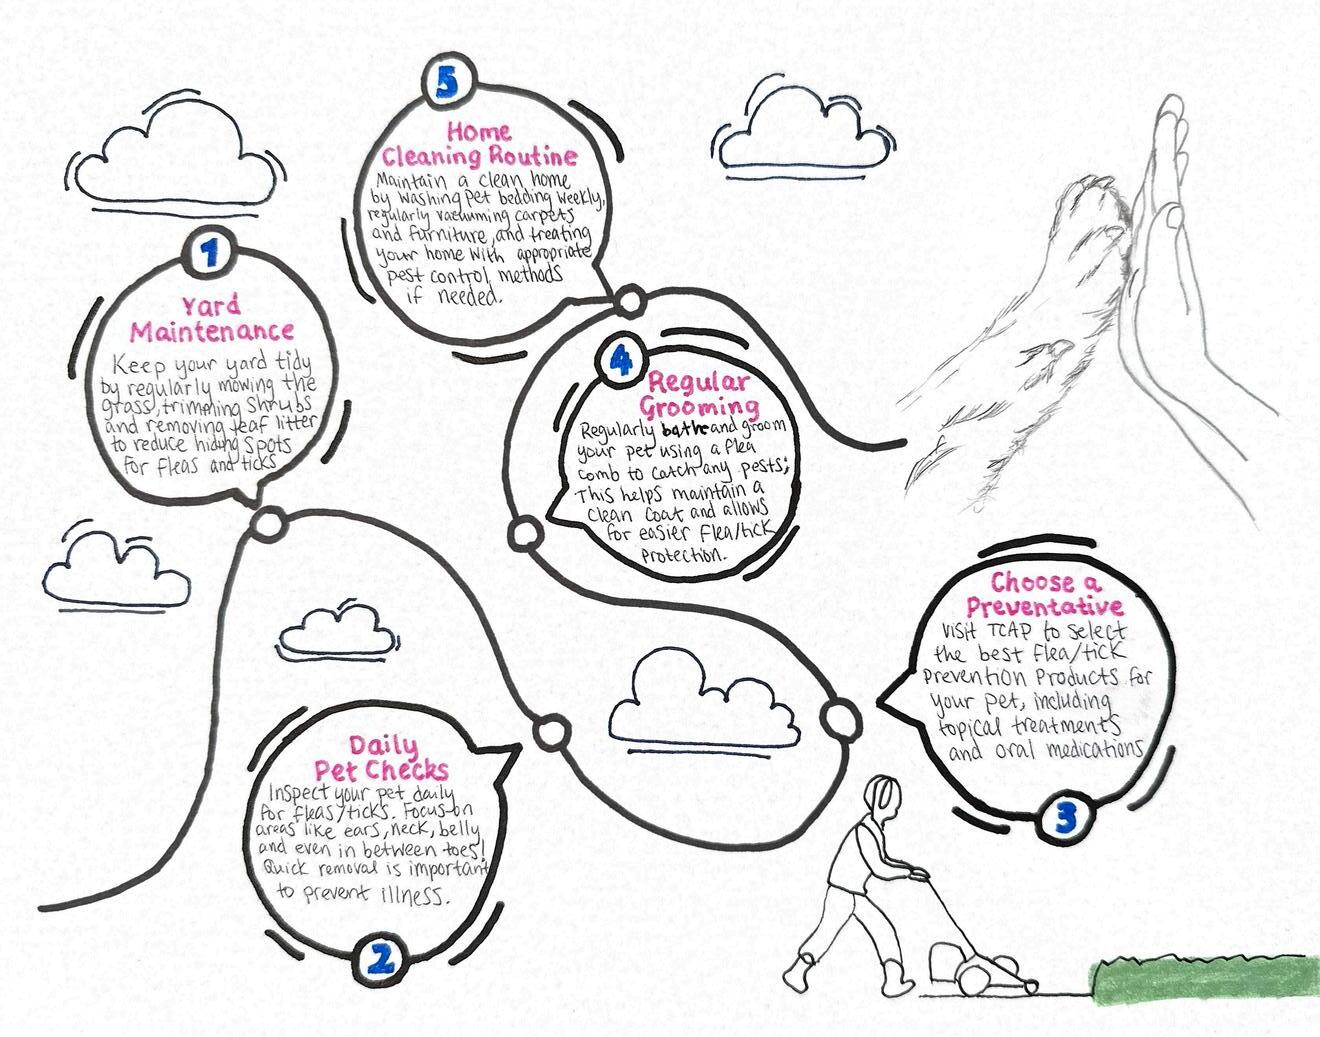 1
Yard
Maintenance
Keep your yard tidy
by regularly mowing the
grass, trimming shrubs
and removing leaf litter
to reduce hiding spots
for fleas and ticks
2
Daily
Pet Checks
Inspect your pet daily
for fleas/ticks. Focus on
areas like ears, neck, belly
and even in between toes!
Quick removal is important
to prevent illness.
3
Choose a
Preventative
Visit TCAP to select
the best flea/tick
prevention products for
your pet, including
topical treatments
and oral medications
4
Regular
Grooming
Regularly bathe and groom
your pet using a flea
comb to catch any pests;
This helps maintain a
clean coat and allows
for easier flea/tick
protection.
5
Home
Cleaning Routine
Maintain a clean home
by washing pet bedding weekly,
regularly vacuuming carpets
and furniture, and treating
your home with appropriate
pest control methods
if needed.